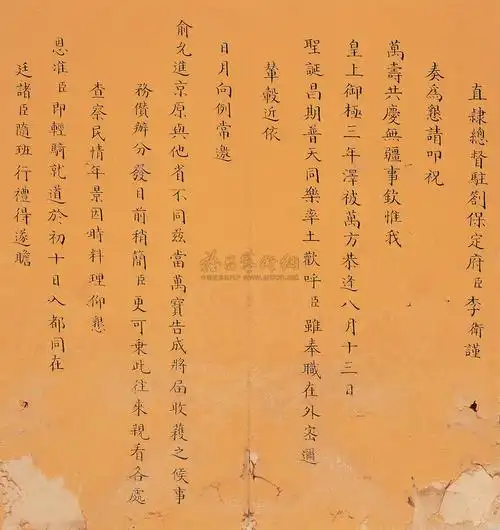 直隸總督駐劄保定府臣李衛謹
奏為懇請叩祝
萬壽共慶無疆事欽惟我
皇上御極三年澤被萬方恭逢八月十三日
聖誕昌期普天同樂率土歡呼臣雖奉職在外密邇
輦轂近依
日月向例常邀
俞允進京原與他省不同茲當萬寶告成將屆收穫之候事
務儹辦分發日前稍簡臣更可乘此往來親看各處
查察民情年景因時料理仰懇
恩准臣即輕騎就道於初十日入都同在
廷諸臣隨班行禮得遂瞻